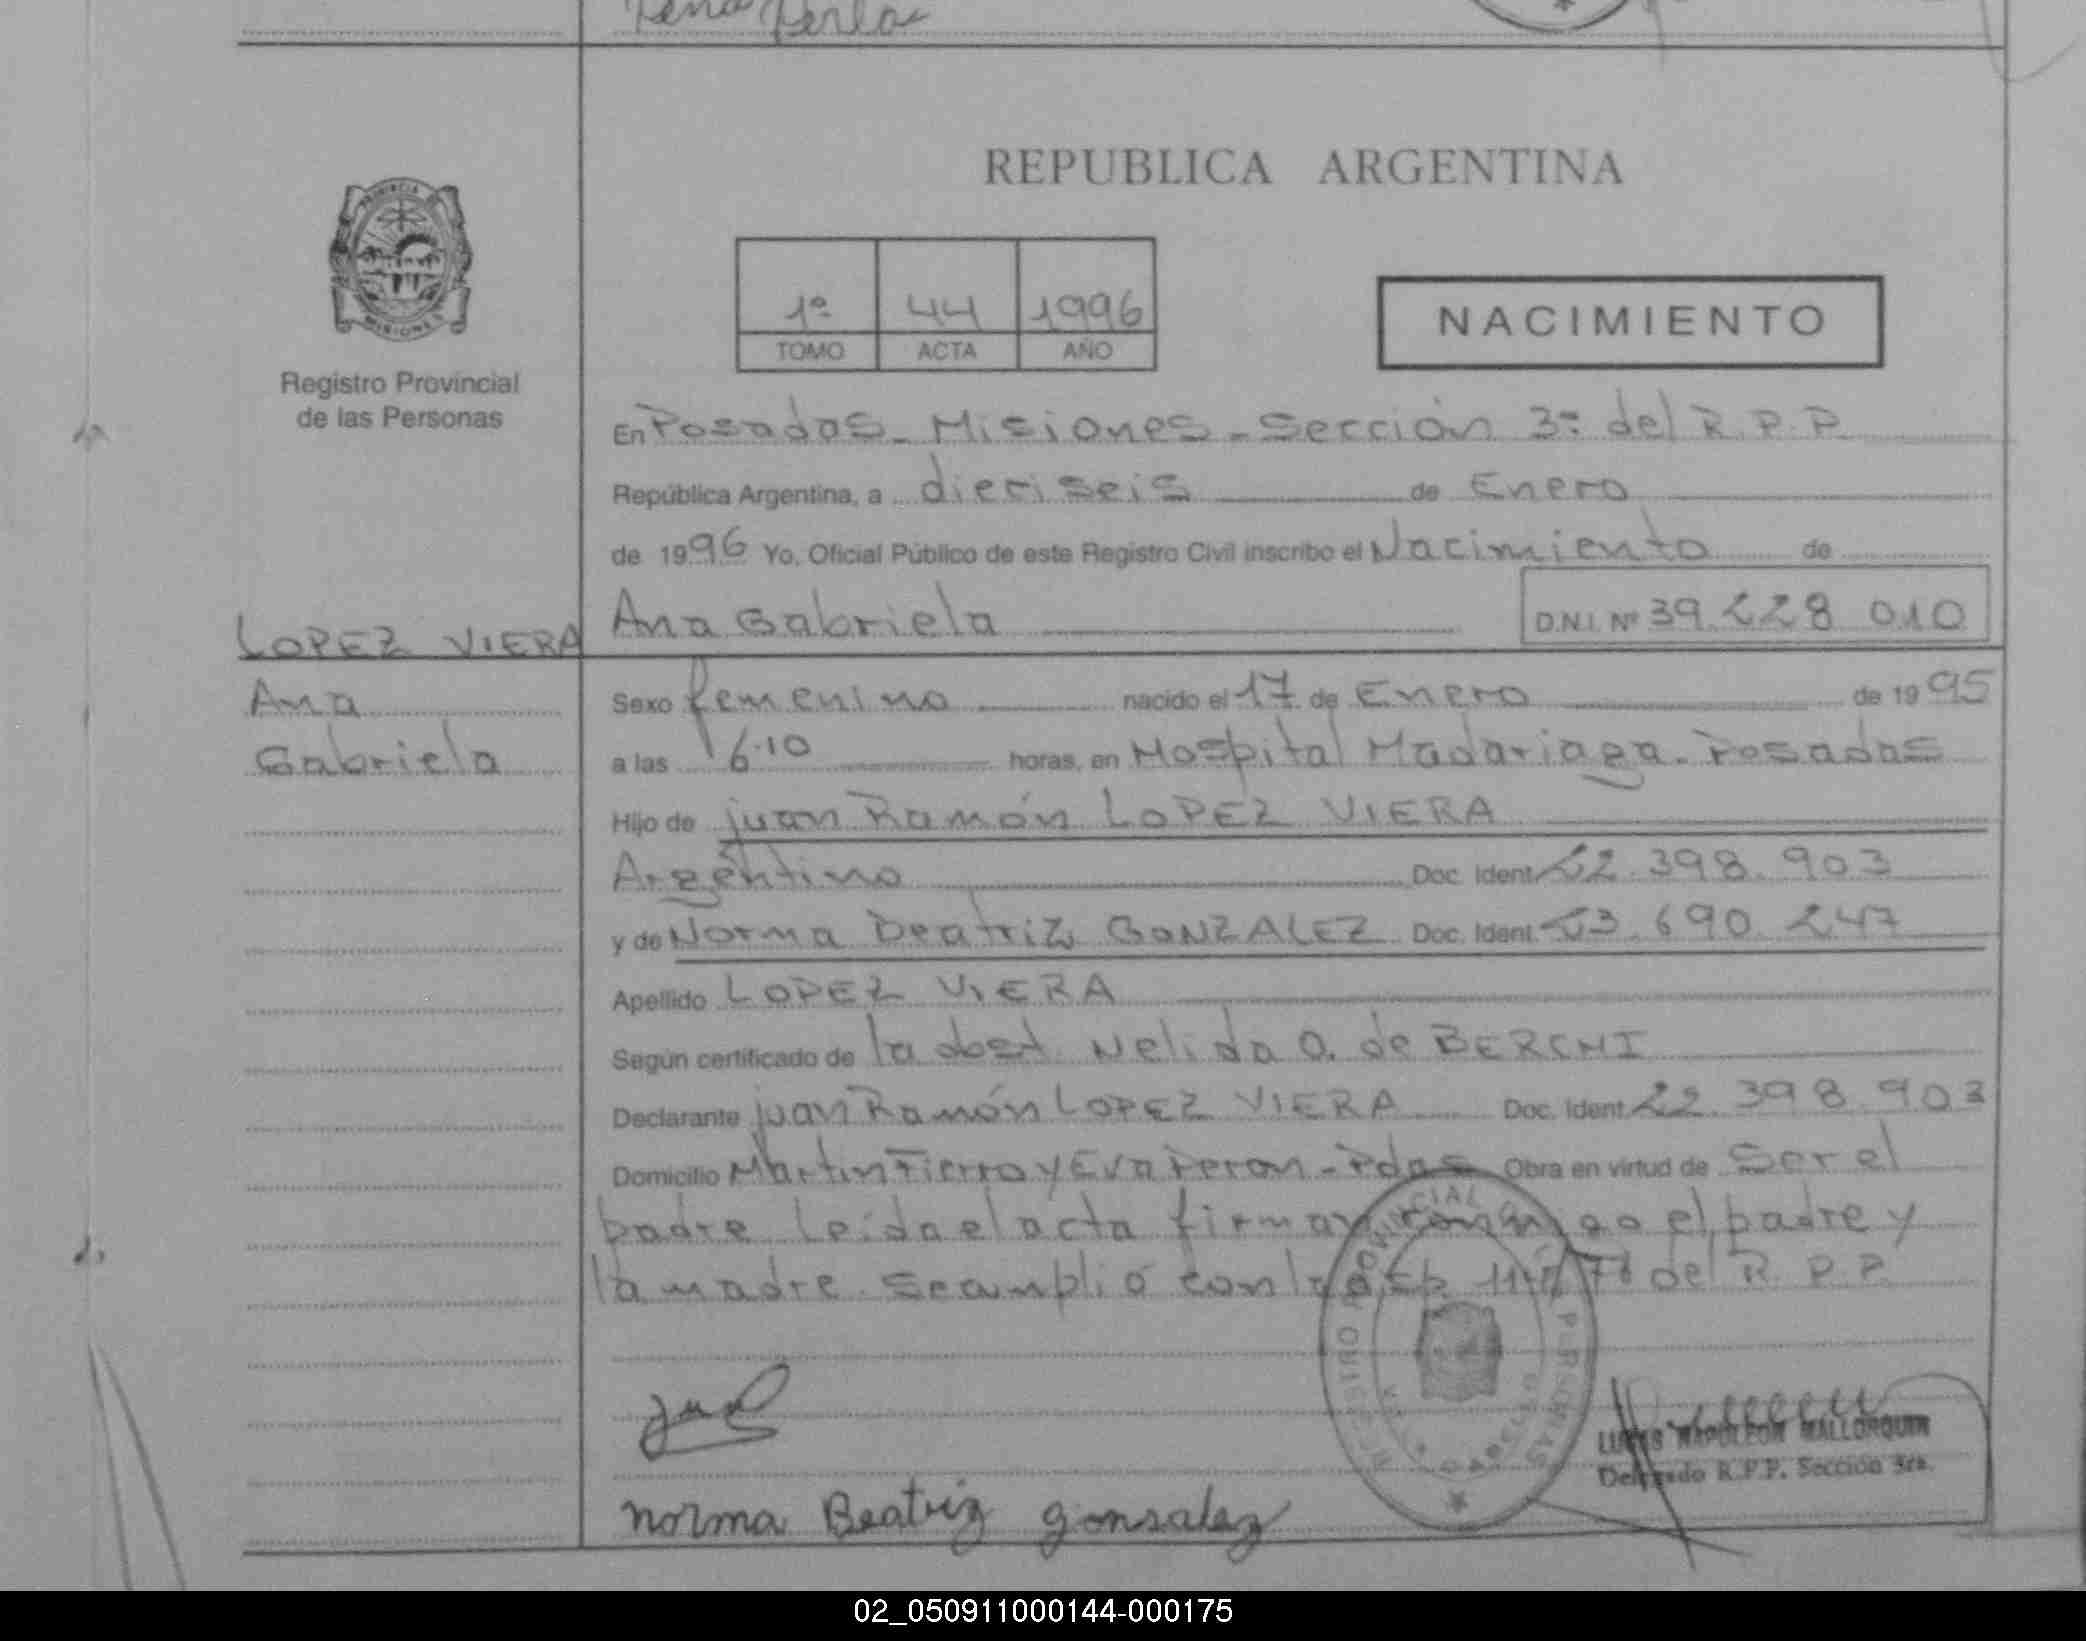 Perla
REPUBLICA ARGENTINA
PROVINCIA
MISIONES
1º 44 1996
TOMO ACTA AÑO
NACIMIENTO
Registro Provincial
de las Personas
En Posadas - Misiones - Sección 3ª del R.P.P.
República Argentina, a dieciseis de Enero
de 1996 Yo, Oficial Público de este Registro Civil inscribo el Nacimiento de
LOPEZ VIERA Ana Gabriela D.N.I. Nº 39.228 010
Ana
Gabriela
Sexo femenino nacido el 17 de Enero de 1995
a las 16·10 horas, en Hospital Madariaga - Posadas
Hijo de juan Ramón LOPEZ VIERA
Argentino Doc. Ident. 22.398.903
y de Norma Beatriz GONZALEZ Doc. Ident. 23.690.247
Apellido LOPEZ VIERA
Según certificado de la obst. Nelida O. de BERCHI
Declarante juan Ramón LOPEZ VIERA Doc. Ident. 22.398.903
Domicilio Martin Fierro y Eva Peron - Pdas Obra en virtud de Ser el
padre Leida el acta firman conmigo el padre y
la madre. Se amplió con del R.P.P.
REGISTRO PROVINCIAL PERSONAS
Norma Beatriz gonsalez
NAPOLEON MALLORQUIN
Delegado R.P.P. Sección 3ra.
02_050911000144-000175